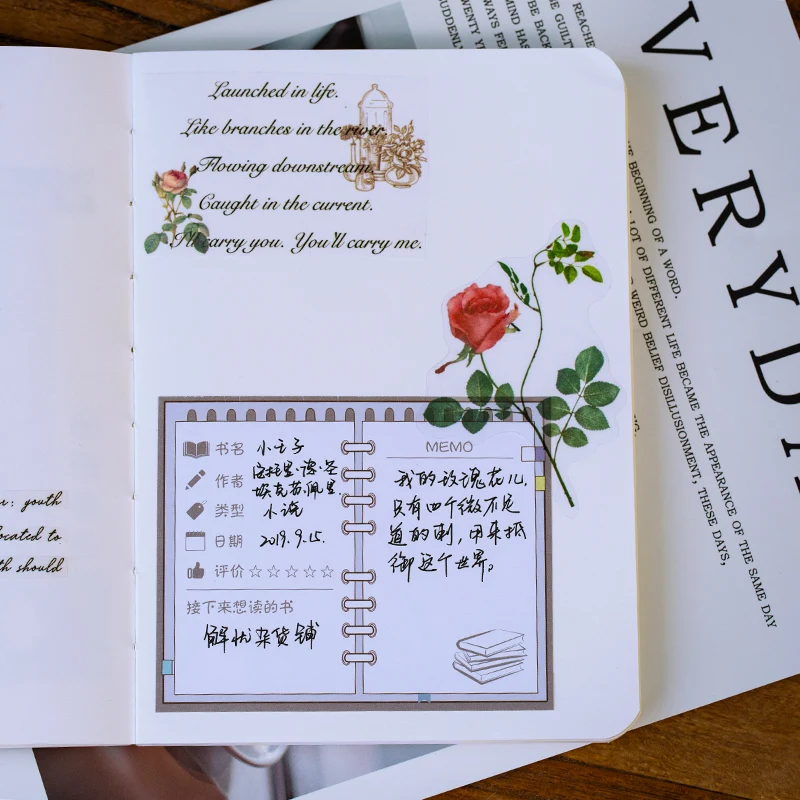 Launched in life.
Like branches in the river.
Flowing downstream.
Caught in the current.
I'll carry you. You'll carry me.
书名 小王子
作者 安托里·德·圣
埃克苏·佩里.
类型 小说
日期 2019.9.15.
评价 ☆☆☆☆☆
接下来想读的书
解忧杂货铺
MEMO
我的玫瑰花儿,
只有四个微不足
道的刺,用来抵
御这个世界。
r: youth
ocated to
th should
VERYD
REACHE
THE GUILT
BE BACK
MIND HAS
ALWAYS FE
TWENTY Y
SUDDENLY
HE BEGINNING OF A WORD.
LOT OF DIFFERENT LIFE BECAME THE APPEARANCE OF THE SAME DAY
WEIRD BELIEF DISILLUSIONMENT, THESE DAYS,